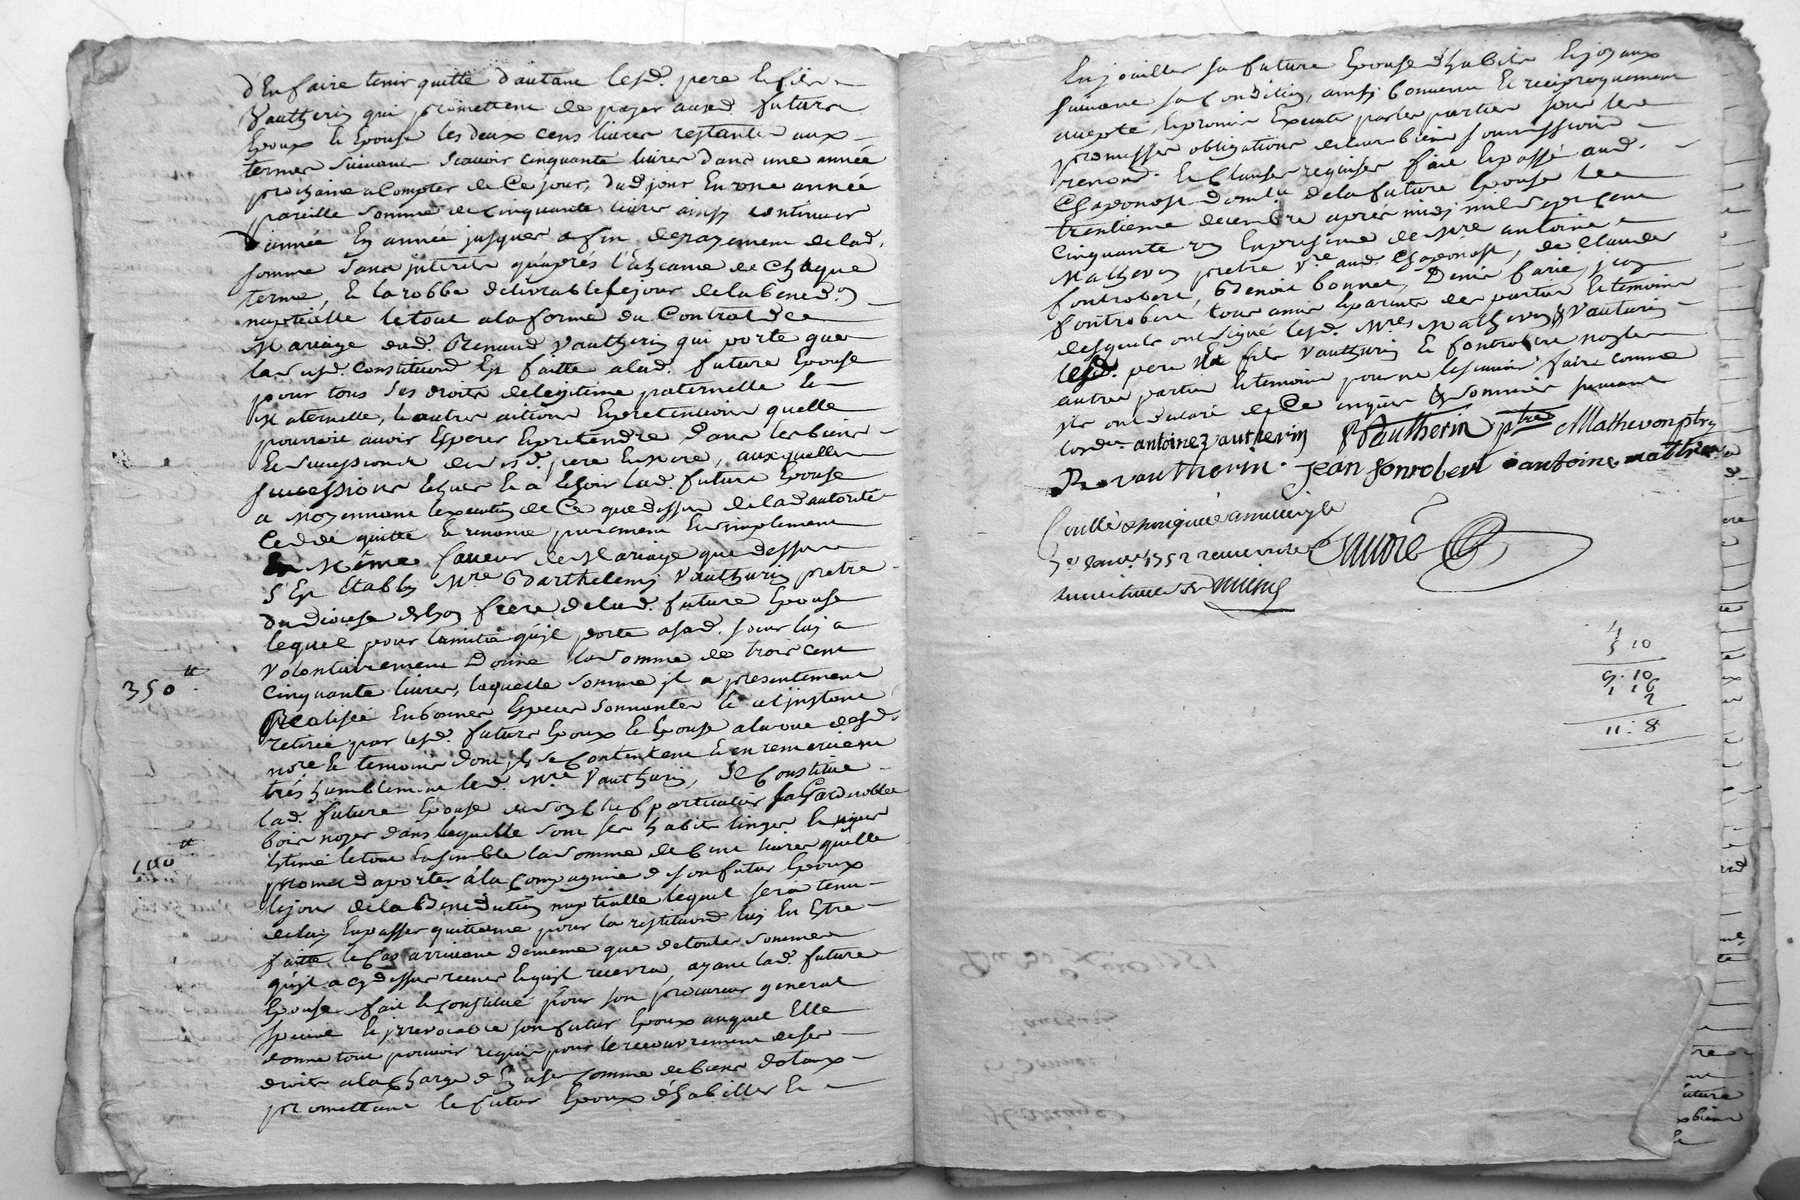 d'En faire tenir quitte d'autant lesd. pere & fils
Vautherin qui promettent de payer auxd. futurs
Epoux & Epouse les deux cens livres restantes aux
termes suivans scavoir cinquante livres dans une année
prochaine a Compter de Ce jour, dud. jour En une année
pareille somme de cinquante livres ainsy continuer
d'année En année jusques a fin de payement de lad.
somme sans interets qu'aprés l'Echeance de Chaque
terme, & la robbe delivrable le jour de la bened.on
nuptialle le tout a la forme du Contrat de
Mariage dud. Renaud Vautherin qui porte que
lad. Constitution Est faitte a lad. future Epouse
pour tous ses droits de legitime paternelle &
Maternelle, & autres actions & pretentions quelle
pourroit avoir Esperer & pretendre dans les biens
& successions de sesd. pere & mere, auxquelles
successions Echues & a Echoir lad. future Epouse
a Moyennant l'execution de Ce que dessus de lad. autorité
Cedé quitté & renoncé purement & simplement
En Même faveur de Mariage que dessus
s'Est Etably Mre Barthelemy Vautherin pretre
du diocese de Lyon frere de lad. future Epouse
lequel pour l'amitié qu'il porte a sad. soeur luy a
Volontairement Donné la somme de trois cent
350tt
cinquante livres, laquelle somme il a presentement
Realisée En bonnes Especes sonnantes & a l'instant
retirée par lesd. futurs Epoux & Epouse a la vue desd.
nore & temoins dont ils se Contentent & en remercient
trés humblement led. Mre Vautherin, se Constitue
lad. future Epouse de son chef particulier sa Garderobbe
bois noyer dans laquelle sont ses habits linges &
100tt
Estimé le tout Ensemble la somme de Cent livres qu'elle
promet d'aporter a la Compagnie de son futur Epoux
le jour de la Benediction nuptialle lequel sera tenu
de luy En passer quittance pour la restitution luy En Etre
faitte le Cas arrivant de meme que de toutes sommes
qu'il a cy dessus receues & qu'il recevra, ayant lad. future
Epouse fait & Constitué pour son procureur general
special & irrevocable son futur Epoux auquel Elle
donne tout pouvoir requis pour le recouvrement de ses
droits a la Charge d'En user Comme de biens dotaux
promettant le futur Epoux d'habiller &
Enjoailler sa future Epouse d'habits & joyaux
suivant sa Condition, ainsy Convenu & reciproquement
accepté & promis Executer par les parties sous les
promesses obligations de leurs biens soumissions
renond. & Clauses requises fait & passé aud.
Chaponost domile de la future Epouse le
trentieme decembre apres midy mil sept cent
Cinquante un En presence de Mre antoine
Mathevon pretre Vre aud. Chaponost, de Claude
fontrobert, Benoit bonnet, Denis farie, jean
fontrobert tous amis & parents des parties & temoins
desquels ont signé lesd. Mres Mathevon & Vautherin
lesd. pere & fils Vautherin & fontrobert non les
autres parties & temoins pour ne le scavoir faire comme
ils ont declaré de Ce enquis & sommés suivant
lord.ce antoine vautherin B Vautherin ptre Mathevon ptre
R vautherin. jean fonrobert antoine mathevon
1752
André
4
5 10
9 . 10
1 16
2
11 : 8